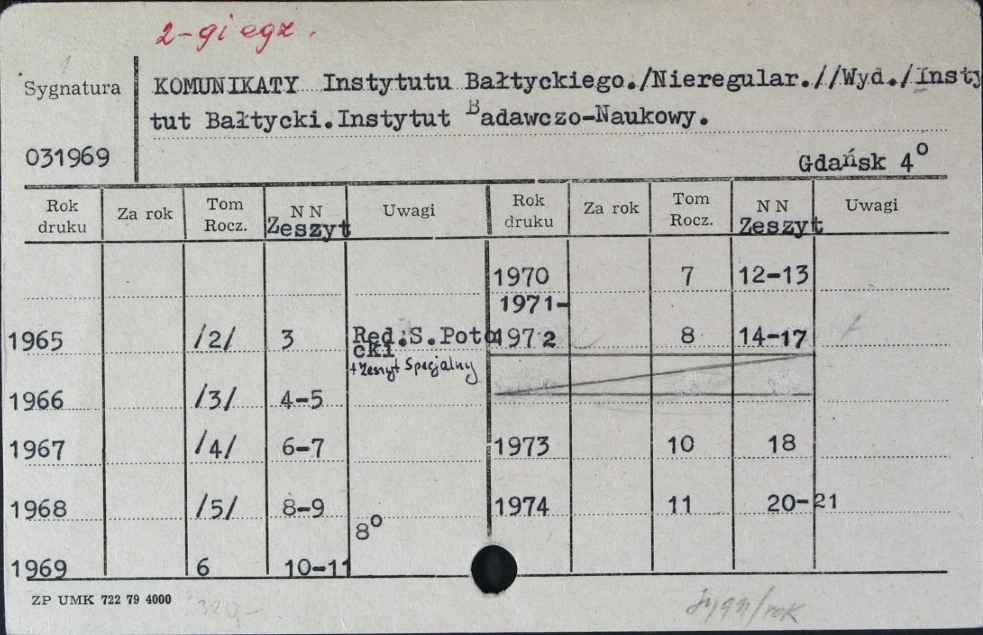 2-gi egz.
Sygnatura
KOMUNIKATY Instytutu Bałtyckiego./Nieregular.//Wyd./Insty
tut Bałtycki.Instytut Badawczo-Naukowy.
031969
Gdańsk 4°
Rok druku Za rok Tom Rocz. NN Zeszyt Uwagi Rok druku Za rok Tom Rocz. NN Zeszyt Uwagi
1970 7 12-13
1971-
1965 /2/ 3 Red.:S.Poto 1972 8 14-17
cki
+ Zeszyt Specjalny
1966 /3/ 4-5
1967 /4/ 6-7 1973 10 18
1968 /5/ 8-9 1974 11 20-21
8°
1969 6 10-11
ZP UMK 722 79 4000